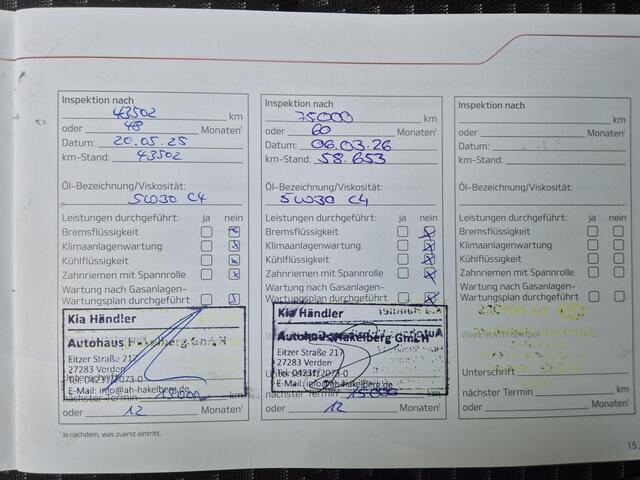 Inspektion nach
43502 km
oder 48 Monaten¹
Datum: 20.05.25
km-Stand: 43502
Öl-Bezeichnung/Viskosität:
5W30 C4
Leistungen durchgeführt: ja nein
Bremsflüssigkeit
Klimaanlagenwartung
Kühlflüssigkeit
Zahnriemen mit Spannrolle
Wartung nach Gasanlagen-
Wartungsplan durchgeführt
Kia Händler
Autohaus Hakelberg GmbH
Eitzer Straße 217
27283 Verden
Tel. 04231/2073-0
E-Mail: info@ah-hakelberg.de
nächster Termin 15000 km
oder 12 Monaten¹
Inspektion nach
75000 km
oder 60 Monaten¹
Datum: 06.03.26
km-Stand: 58.653
Öl-Bezeichnung/Viskosität:
5W30 C4
Leistungen durchgeführt: ja nein
Bremsflüssigkeit
Klimaanlagenwartung
Kühlflüssigkeit
Zahnriemen mit Spannrolle
Wartung nach Gasanlagen-
Wartungsplan durchgeführt
Kia Händler
Autohaus Hakelberg GmbH
Eitzer Straße 217
27283 Verden
Tel. 04231/2073-0
E-Mail: info@ah-hakelberg.de
nächster Termin 15000 km
oder 12 Monaten¹
Inspektion nach
km
oder Monaten¹
Datum:
km-Stand:
Öl-Bezeichnung/Viskosität:
Leistungen durchgeführt: ja nein
Bremsflüssigkeit
Klimaanlagenwartung
Kühlflüssigkeit
Zahnriemen mit Spannrolle
Wartung nach Gasanlagen-
Wartungsplan durchgeführt
Werkstattstempel
Unterschrift
nächster Termin km
oder Monaten¹
¹ Je nachdem, was zuerst eintritt.
15.